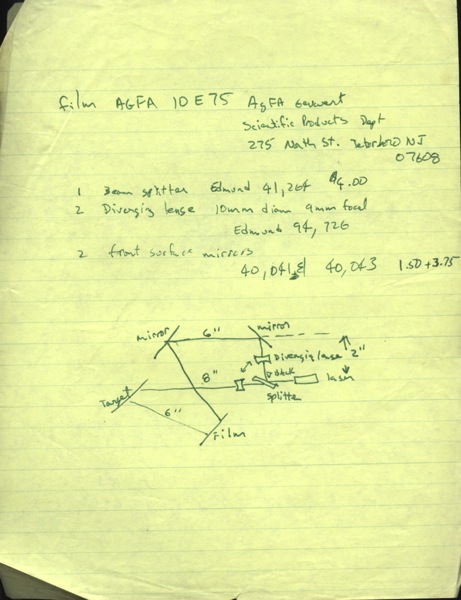 film AGFA 10E75 AgFA Gevaert
Scientific Products Dept
275 North St. Teterboro NJ
07608
1 Beam splitter Edmund 41,264 $4.00
2 Diverging lense 10mm diam 9mm focal
Edmund 94,726
2 front surface mirrors
40,041 & 40,043 1.50+3.75
mirror 6" mirror
Diverging lense 2"
8" Black laser
Target splitter
6"
Film